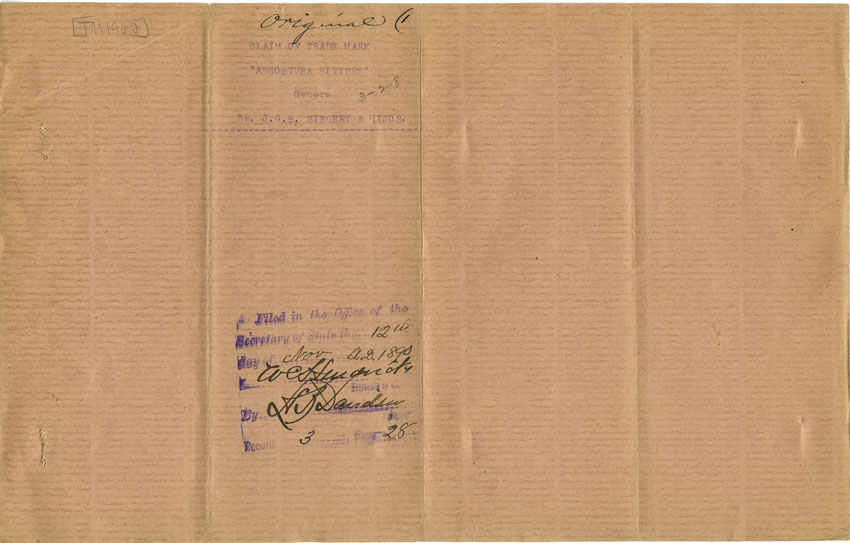 [TM1902]
Original (1
CLAIM OF TRADE MARK
"ANGOSTURA BITTERS"
Owners
3-28
DR. J.G.B. SIEGERT & HIJOS.
Filed in the Office of the
Secretary of State the 12th
day of Nov A.D. 1890
W C Hendricks
By H B Davidson
Record 3 Page 28